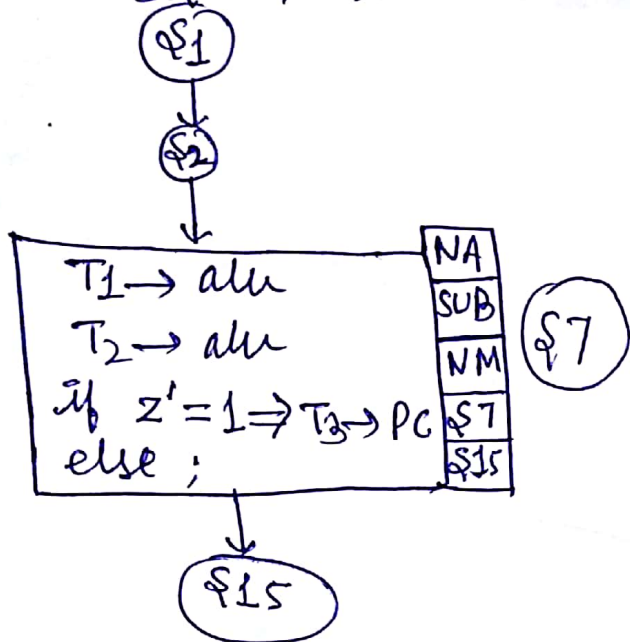 S1
S2
T1 → alu
T2 → alu
if z' = 1 ⇒ T3 → PC
else ;
NA
SUB
NM
S7
S15
S7
S15